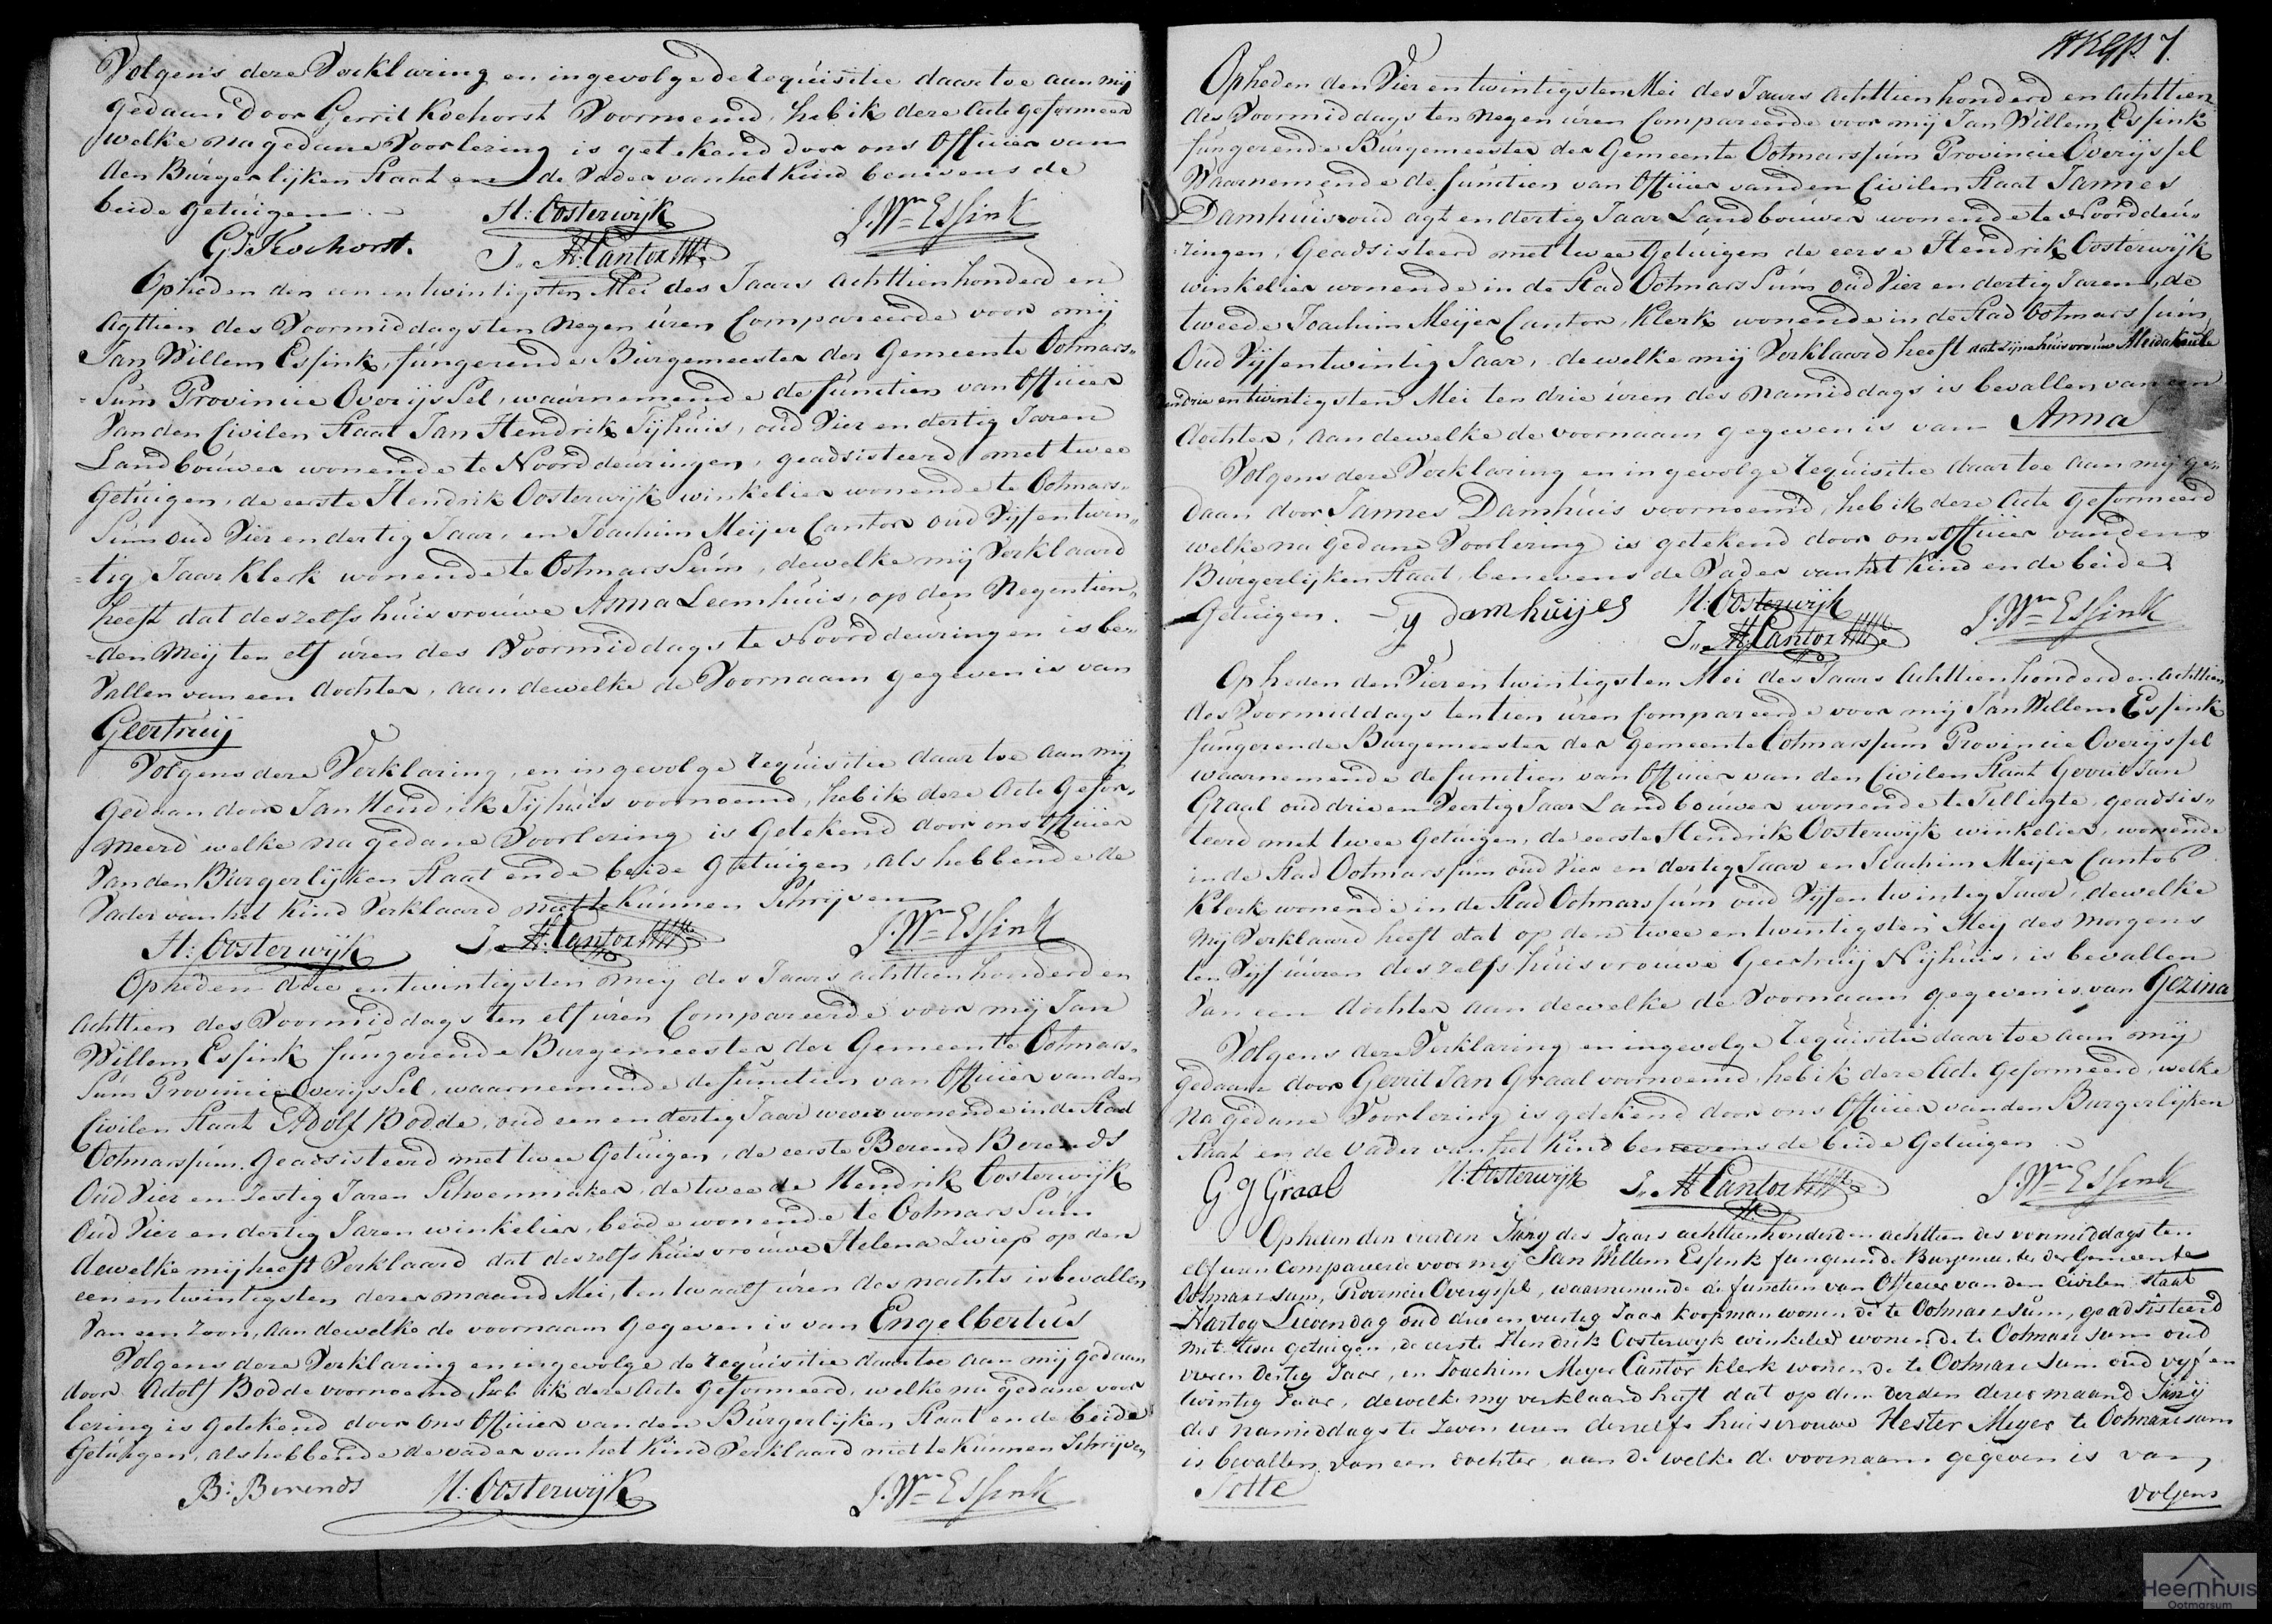 Volgens deze Verklaring en ingevolge de requisitie daartoe aan mij
gedaan door Gerrit Koehorst Voornoemd, heb ik deze Acte geformeerd
welke na gedane Voorlezing is getekend door ons Officier van
den Burgerlijken Staat en de Vader van het Kind benevens de
beide getuigen
H: Oosterwijk J. Wm Essink
G: Koehorst. J. M: Cantor
Opheden den een en twintigsten Mei des Jaars Achttienhonderd en
Agttien des Voormiddags ten Negen uren Compareerde voor mij
Jan Willem Essink, fungerende Burgemeester der Gemeente Ootmars„
„sum Provincie Overijssel, waarnemende de functien van Officier
Van den Civilen Staat Jan Hendrik Tijhuis, oud Vier en dertig Jaren
Landbouwer wonende te Noorddeuringen, geadsisteerd met twee
Getuigen, de eerste Hendrik Oosterwijk winkelier wonende te Ootmars„
Sum oud Vier en dertig Jaar, en Joachim Meijer Cantor oud Vijf en twin„
„tig Jaar Klerk wonende te Ootmars Sum, dewelke mij Verklaard
heeft dat deszelfs huisvrouwe Anna Leemhuis, op den Negentien„
„den Meij ten elf uren des Voormiddags te Noorddeuringen is be„
Vallen van een dochter, aan dewelke de Voornaam gegeven is van
Geertruij
Volgens deze Verklaring, en ingevolge requisitie daar toe aan mij
gedaan door Jan Hendrik Tijhuis voornoemd, heb ik deze Acte Gefor„
meerd welke na gedane Voorlezing is Getekend door ons Officier
Van den Burgerlijken Staat en de beide Getuigen, als hebbende de
Vader van het Kind Verklaard niet te Kunnen Schrijven
H: Oosterwijk J. M: Cantor J. Wm Essink
Opheden drie en twintigsten Meij des Jaars achttien honderd en
Achttien des Voormiddags ten elf uren Compareerde voor mij Jan
Willem Essink fungerende Burgemeester der Gemeente Ootmars„
Sum Provincie Overijs Sel, waarnemende de functien van Officier van den
Civilen Staat Adolf Bodde, oud een en dertig Jaar wever wonende in de Stad
Ootmarssum. Geadsisteerd met twee Getuigen, de eerste Berend Berends
Oud Vier en Zestig Jaren Schoenmaker, de tweede Hendrik Oosterwijk
Oud Vier en dertig Jaren winkelier, beide wonende te Ootmars Sum
dewelke mij heeft Verklaard dat deszelfs huisvrouwe Helena Zwiep op den
een en twintigsten dezer maand Mei, ten twaalf uren des nachts is bevallen
Van een Zoon, aan dewelke de voornaam gegeven is van Engelbertus
Volgens deze Verklaring en ingevolge de requisitie daartoe aan mij gedaan
door Adolf Bodde voornoemd, heb ik deze Acte Geformeerd, welke na gedane voor
lezing is Getekend door ons Officier van den Burgerlijken Staat en de beide
Getuigen, als hebbende de vader van het Kind Verklaard niet te Kunnen Schrijven
B: Berends H: Oosterwijk J. Wm Essink
7.
Opheden den Vier en twintigsten Mei des Jaars Achttienhonderd en Achttien
des Voormiddags ten Negen uren Compareerde voor mij Jan Willem Essink
fungerende Burgemeester der Gemeente Ootmarssum Provincie Overijssel
Waarnemende de functien van Officier van den Civilen Staat Jannes
Damhuis oud agt en dertig Jaar Landbouwer wonende te Noorddeu„
„ringen, Geadsisteerd met twee Getuigen de eerse Hendrik Oosterwijk
winkelier wonende in de Stad Ootmars Sum oud Vier en dertig Jaren, de
tweede Joachim Meijer Cantor, Klerk wonende in de Stad Ootmarssum,
Oud Vijf en twintig Jaar, dewelke mij Verklaard heeft dat zijne huisvrouw
den drie en twintigsten Mei ten drie uren des Namiddags is bevallen van een
dochter, aan dewelke de voornaam gegeven is van Anna
Volgens deze Verklaring en ingevolge requisitie daartoe aan mij ge„
daan door Jannes Damhuis voornoemd, heb ik deze Acte geformeerd
welke na gedane Voorlezing is getekend door ons Officier van den
Burgerlijken Staat, benevens de Vader van het Kind en de beide
Getuigen. damhuijes H: Oosterwijk J. Wm Essink
J. M: Cantor
Opheden den Vier en twintigsten Mei des Jaars Achttienhonderd en Achttien
des Voormiddags ten tien uren Compareerde voor mij Jan Willem Essink
fungerende Burgemeester der gemeente Ootmarssum Provincie Overijssel
waarnemende de functien van Officier van den Civilen Staat Gerrit Jan
Graal oud drie en Veertig Jaar Landbouwer wonende te Tilligte, geadsis„
teerd met twee getuigen, de eerste Hendrik Oosterwijk winkelier, wonende
in de Stad Ootmarssum oud Vier en dertig Jaar en Joachim Meijer Cantor
Klerk wonende in de Stad Ootmarssum oud Vijf en twintig Jaar, dewelke
Mij Verklaard heeft dat op den twee en twintigsten Meij des Morgens
ten Vijf uuren deszelfs huisvrouwe Geertruij Nijhuis, is bevallen
Van een dochter aan dewelke de Voornaam gegeven is van Gezina
Volgens deze Verklaring en ingevolge requisitie daartoe aan mij
gedaan door Gerrit Jan Graal voornoemd, heb ik deze Acte Geformeerd, welke
Na gedane Voorlezing is getekend door ons Officier van den Burgerlijken
Staat en de Vader van het Kind benevens de beide Getuigen
G J Graal H: Oosterwijk J. M Cantor J. Wm Essink
Opheden den vierden Junij des Jaars achttienhonderd en achttien des voormiddags ten
elf uren Compareerde voor mij Jan Willem Essink fungerende Burgemeester der Gemeente
Ootmarssum, Provincie Overijssel, waarnemende de functien van Officier van den Civilen Staat
Hartog Lievendag oud drie en veertig Jaar Koopman wonende te Ootmarssum, geadsisteerd
met twee getuigen, de eerste Hendrik Oosterwijk winkelier wonende te Ootmarssum oud
vier en dertig Jaar, en Joachim Meijer Cantor klerk wonende te Ootmarssum oud vijf en
twintig Jaar, dewelke mij verklaard heeft dat op den derden dezer maand Junij
des namiddags te zeven uren deszelfs huisvrouwe Hester Meyer te Ootmarssum
is bevallen van een dochter, aan dewelke de voornaam gegeven is van
Jotte
Volgens
Heemhuis
Ootmarsum